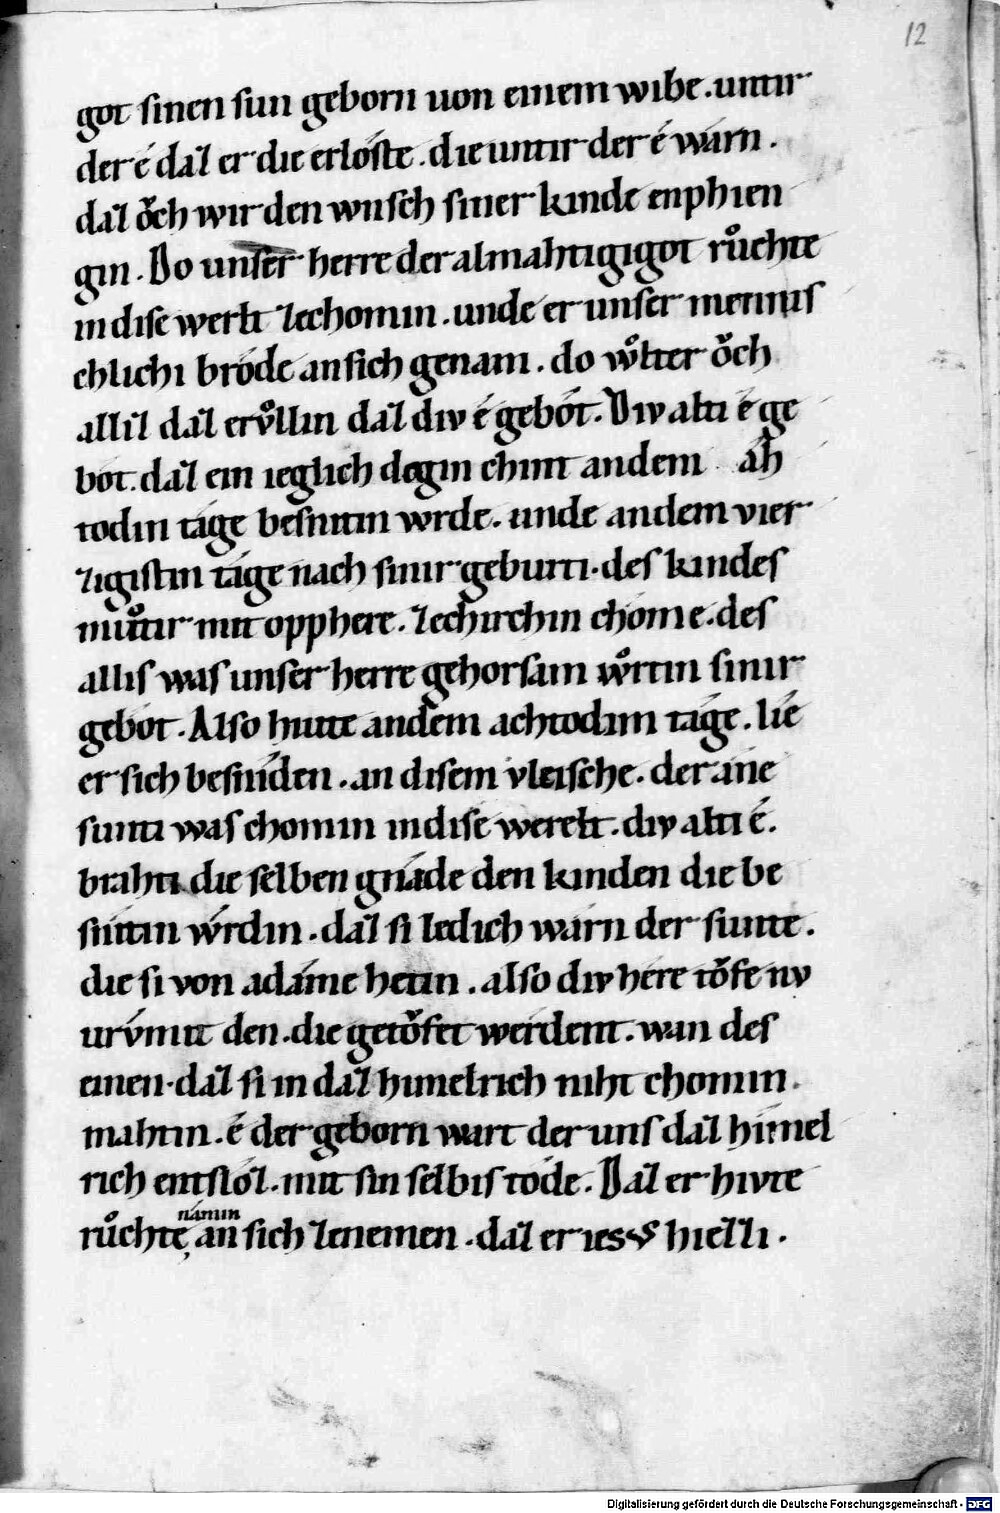 12
got sinen sun geborn uon einem wibe. untir
der é daz er die erlóste. die untir der é wárn.
daz oͮch wir den wnsch siner kinde enphien
gin. Do unser herre der almahtigi got ruͦchte
in dise werlt zechomin. unde er unser mennis
chlichi bróde an sich genam. do wͦlter oͮch
alliz daz ervͦllin daz div é gebót. Div alti é ge
bót. daz ein ieglich degin chint an dem áh
todin táge besnitin wrde. unde an dem vier
zigistin táge nach sinir geburti. des kindes
muͦtir mit opphere. zechirchin chóme. des
allis was unser herre gehorsam wͦrtin sinir
gebót. Also hiute an dem achtodim táge. lie
er sich besniden. an disem vleische. der áne
sunti was chomin in dise werelt. div alti é.
brahti die selben gnáde den kinden die be
snitin wrdin. daz si ledich wárn der sunte.
die si von adáme hetin. also div here toͮfe nv
urv́mit den. die getoͮfet werdent. wan des
einen. daz si in daz himelrich niht chomin.
mahtin. é der geborn wart der uns daz himel
rich entslóz. mit sin selbis tóde. Daz er hivte
námin
ruͦchte an sich zenemen. daz er iesus hiezzi.
Digitalisierung gefördert durch die Deutsche Forschungsgemeinschaft - DFG